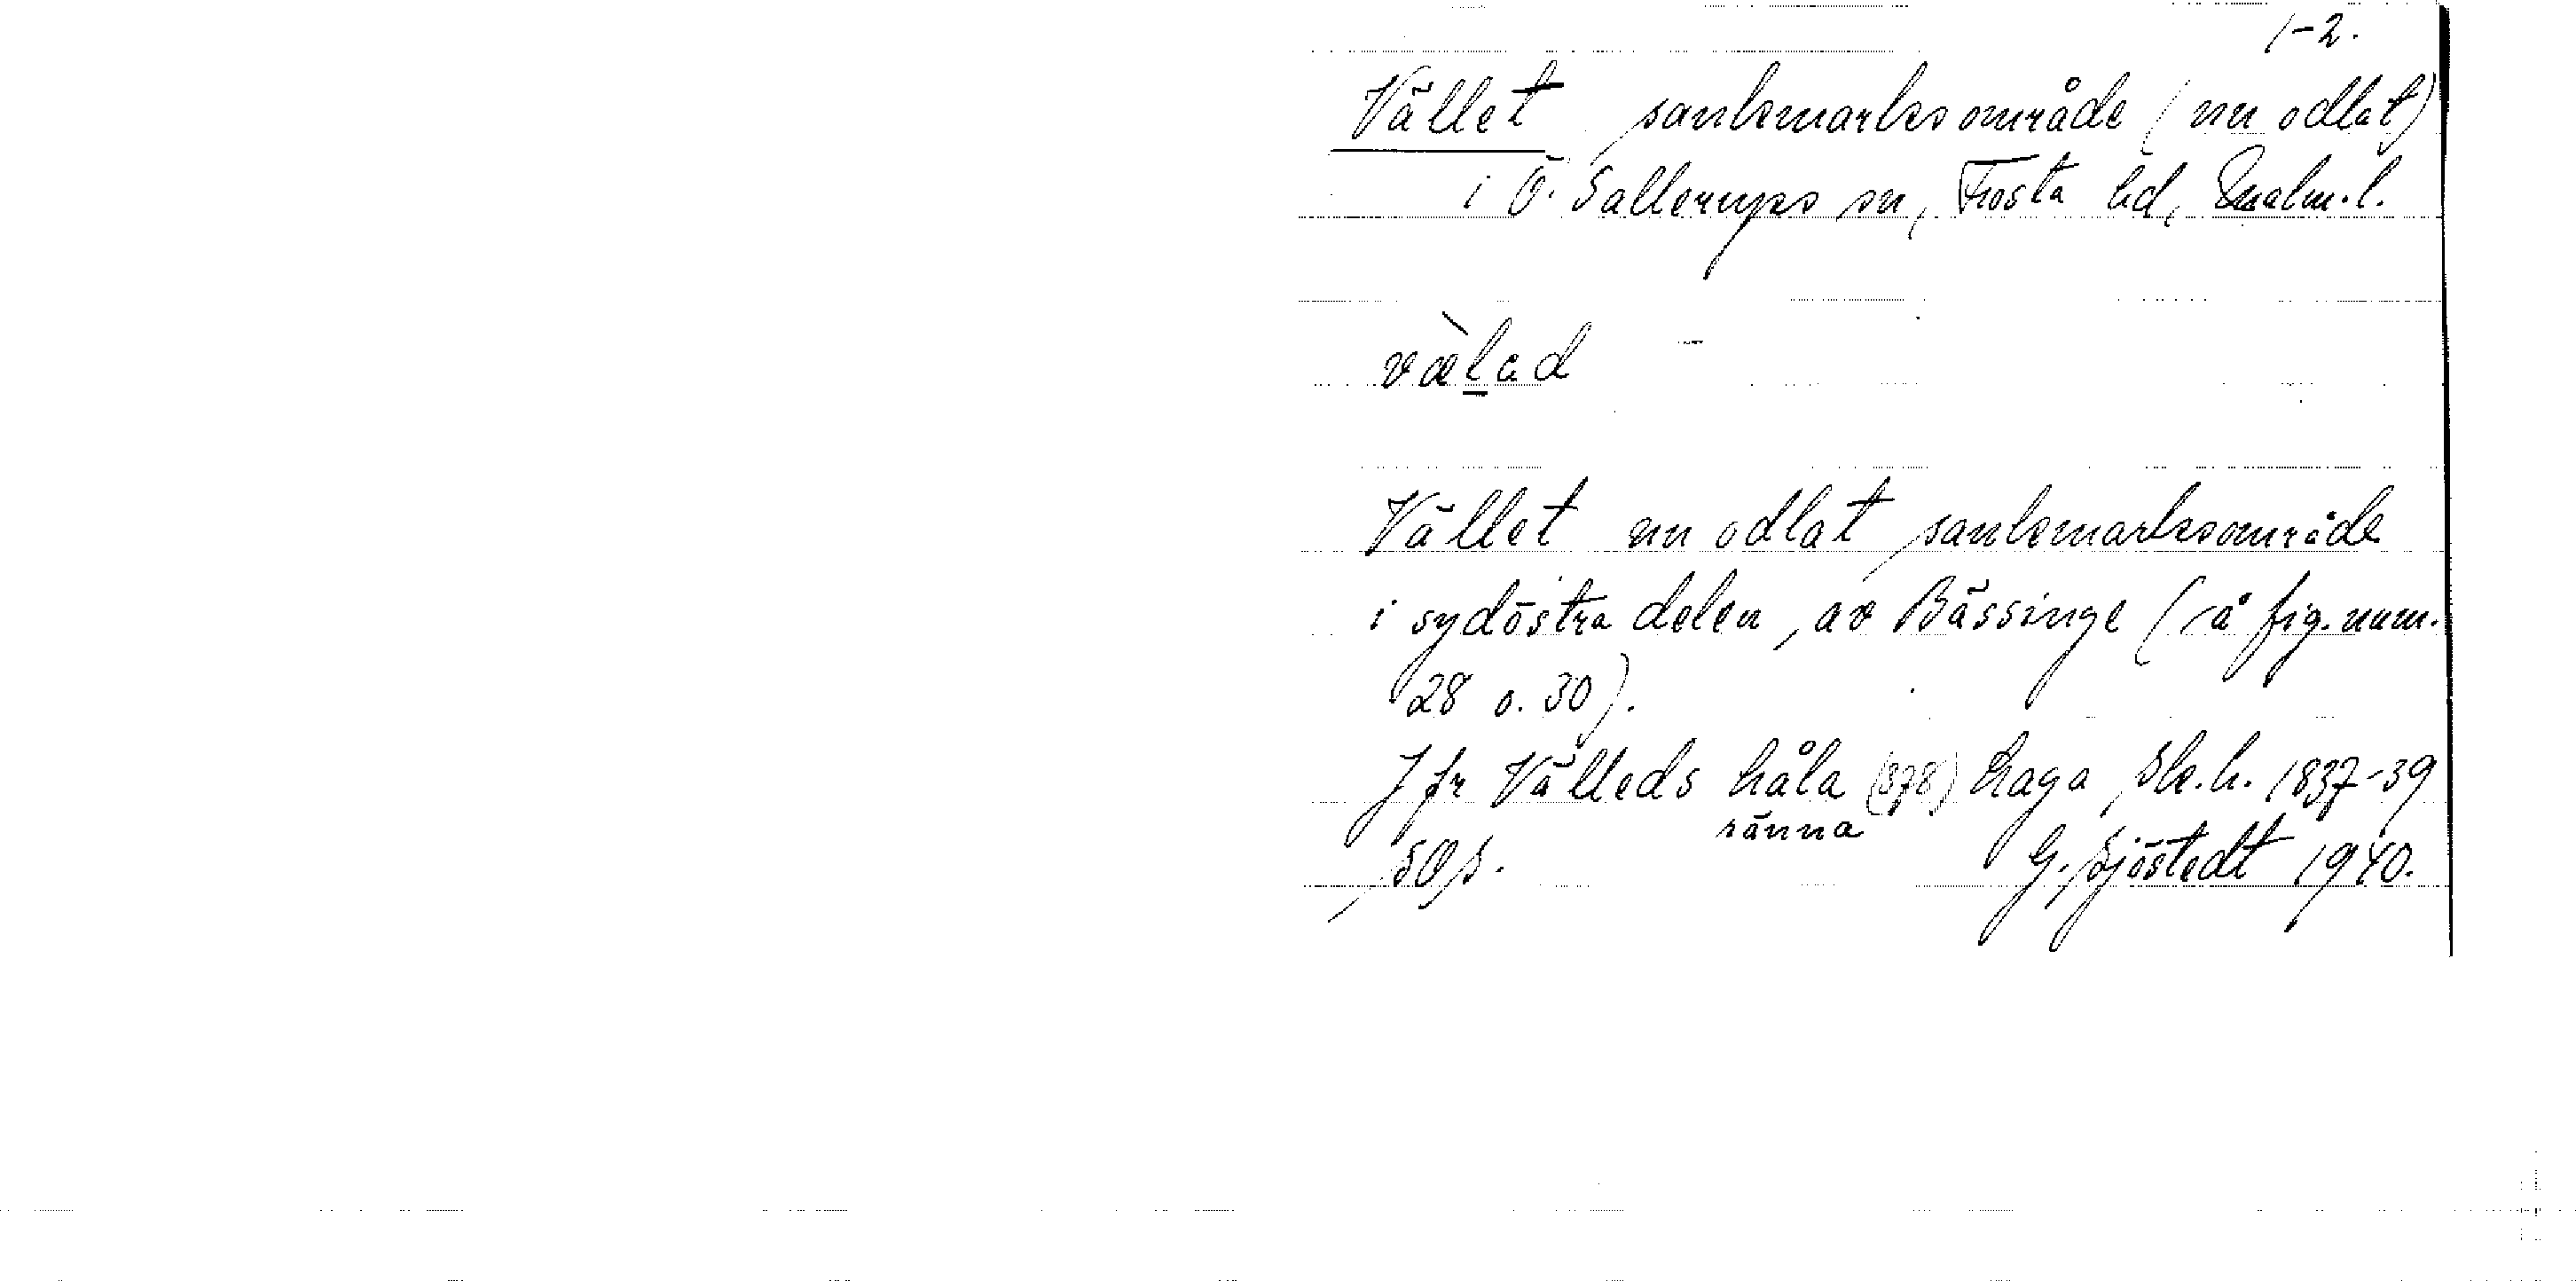 1-2.
Vället sanksmarksområde (nu odlat)
i Ö. Sallerups sn, Frosta hd, Malm.l.
væ̀lad
Vället nu odlat sanksmarksområde
i sydöstra delen av Bässinge (rå fig. num.
28 o. 30).
Jfr Välleds håla (878) Laga sk.h. 1837-39
ränna
SOs. G. Sjöstedt 1940.